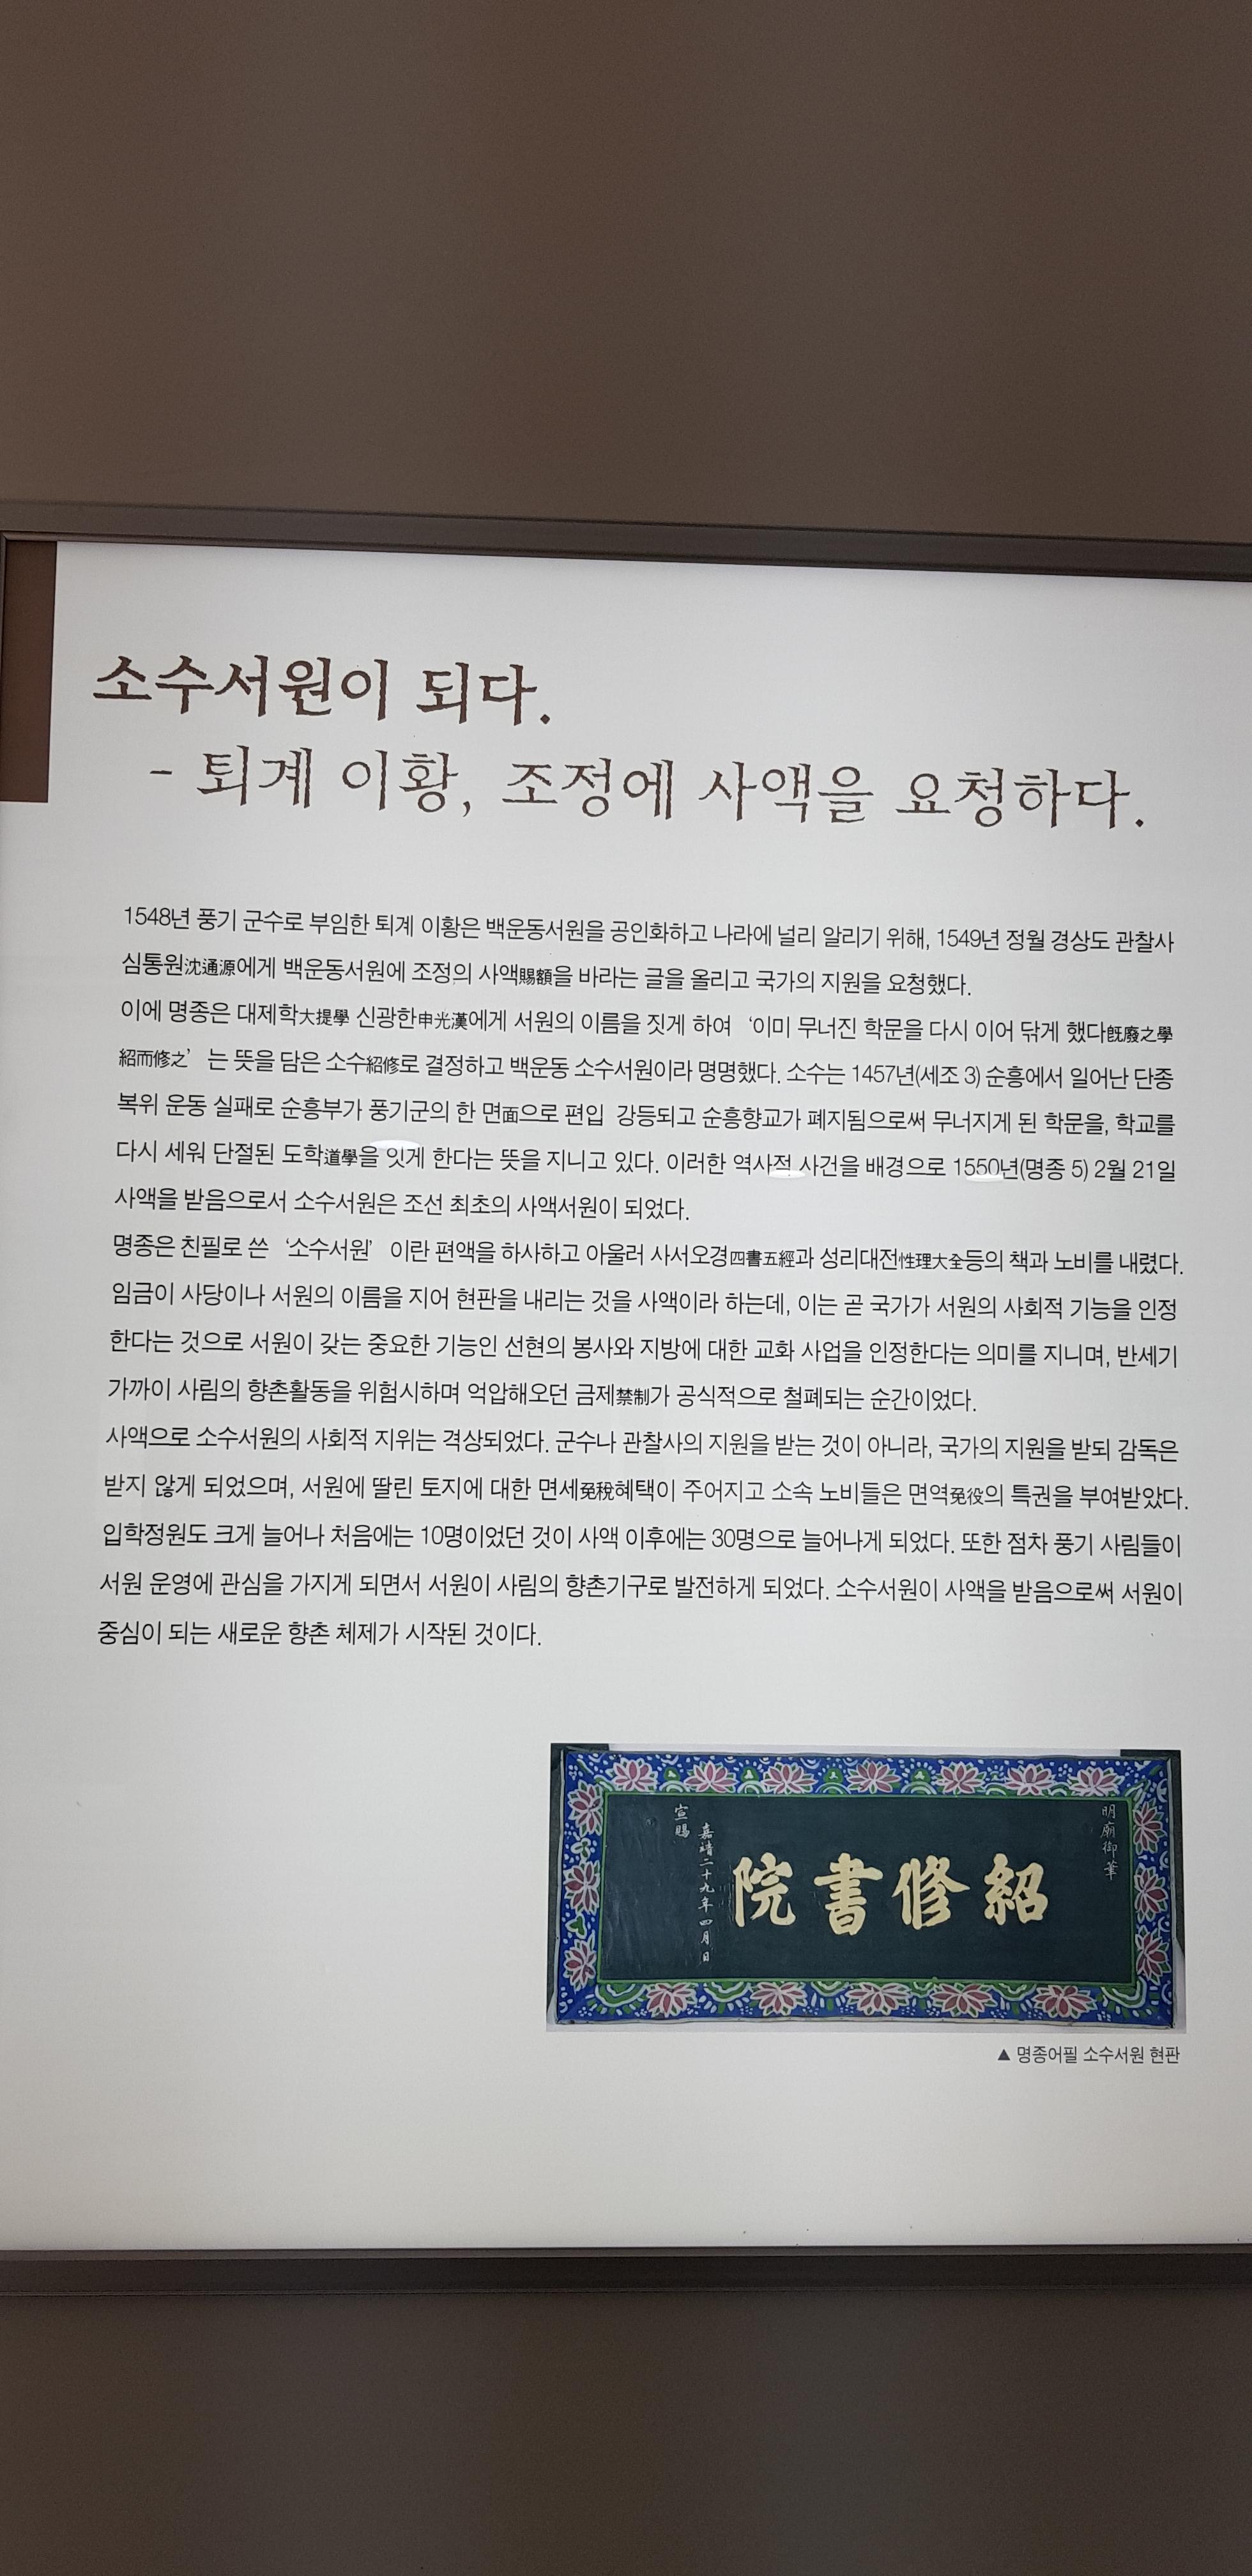 소수서원이 되다.
- 퇴계 이황, 조정에 사액을 요청하다.
1548년 풍기 군수로 부임한 퇴계 이황은 백운동서원을 공인화하고 나라에 널리 알리기 위해, 1549년 정월 경상도 관찰사
심통원沈通源에게 백운동서원에 조정의 사액賜額을 바라는 글을 올리고 국가의 지원을 요청했다.
이에 명종은 대제학大提學 신광한申光漢에게 서원의 이름을 짓게 하여 ‘이미 무너진 학문을 다시 이어 닦게 했다旣廢之學
紹而修之’ 는 뜻을 담은 소수紹修로 결정하고 백운동 소수서원이라 명명했다. 소수는 1457년(세조 3) 순흥에서 일어난 단종
복위 운동 실패로 순흥부가 풍기군의 한 면面으로 편입 강등되고 순흥향교가 폐지됨으로써 무너지게 된 학문을, 학교를
다시 세워 단절된 도학道學을 잇게 한다는 뜻을 지니고 있다. 이러한 역사적 사건을 배경으로 1550년(명종 5) 2월 21일
사액을 받음으로서 소수서원은 조선 최초의 사액서원이 되었다.
명종은 친필로 쓴 ‘소수서원’ 이란 편액을 하사하고 아울러 사서오경四書五經과 성리대전性理大全등의 책과 노비를 내렸다.
임금이 사당이나 서원의 이름을 지어 현판을 내리는 것을 사액이라 하는데, 이는 곧 국가가 서원의 사회적 기능을 인정
한다는 것으로 서원이 갖는 중요한 기능인 선현의 봉사와 지방에 대한 교화 사업을 인정한다는 의미를 지니며, 반세기
가까이 사림의 향촌활동을 위험시하며 억압해오던 금제禁制가 공식적으로 철폐되는 순간이었다.
사액으로 소수서원의 사회적 지위는 격상되었다. 군수나 관찰사의 지원을 받는 것이 아니라, 국가의 지원을 받되 감독은
받지 않게 되었으며, 서원에 딸린 토지에 대한 면세免稅혜택이 주어지고 소속 노비들은 면역免役의 특권을 부여받았다.
입학정원도 크게 늘어나 처음에는 10명이었던 것이 사액 이후에는 30명으로 늘어나게 되었다. 또한 점차 풍기 사림들이
서원 운영에 관심을 가지게 되면서 서원이 사림의 향촌기구로 발전하게 되었다. 소수서원이 사액을 받음으로써 서원이
중심이 되는 새로운 향촌 체제가 시작된 것이다.
明廟御筆
紹修書院
嘉靖二十九年四月日
宣賜
▲ 명종어필 소수서원 현판